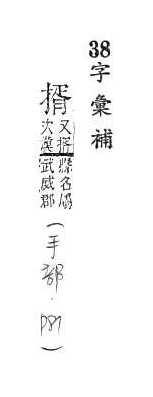 38字彙補
揟
又揟
次漢
縣名屬
武威郡
(手部·P81)